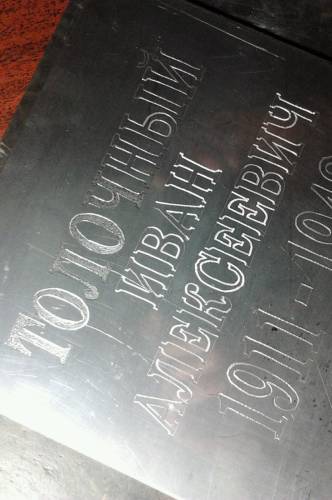 ТОЛОЧНЫЙ
ИВАН
АЛЕКСЕЕВИЧ
1911 - 194